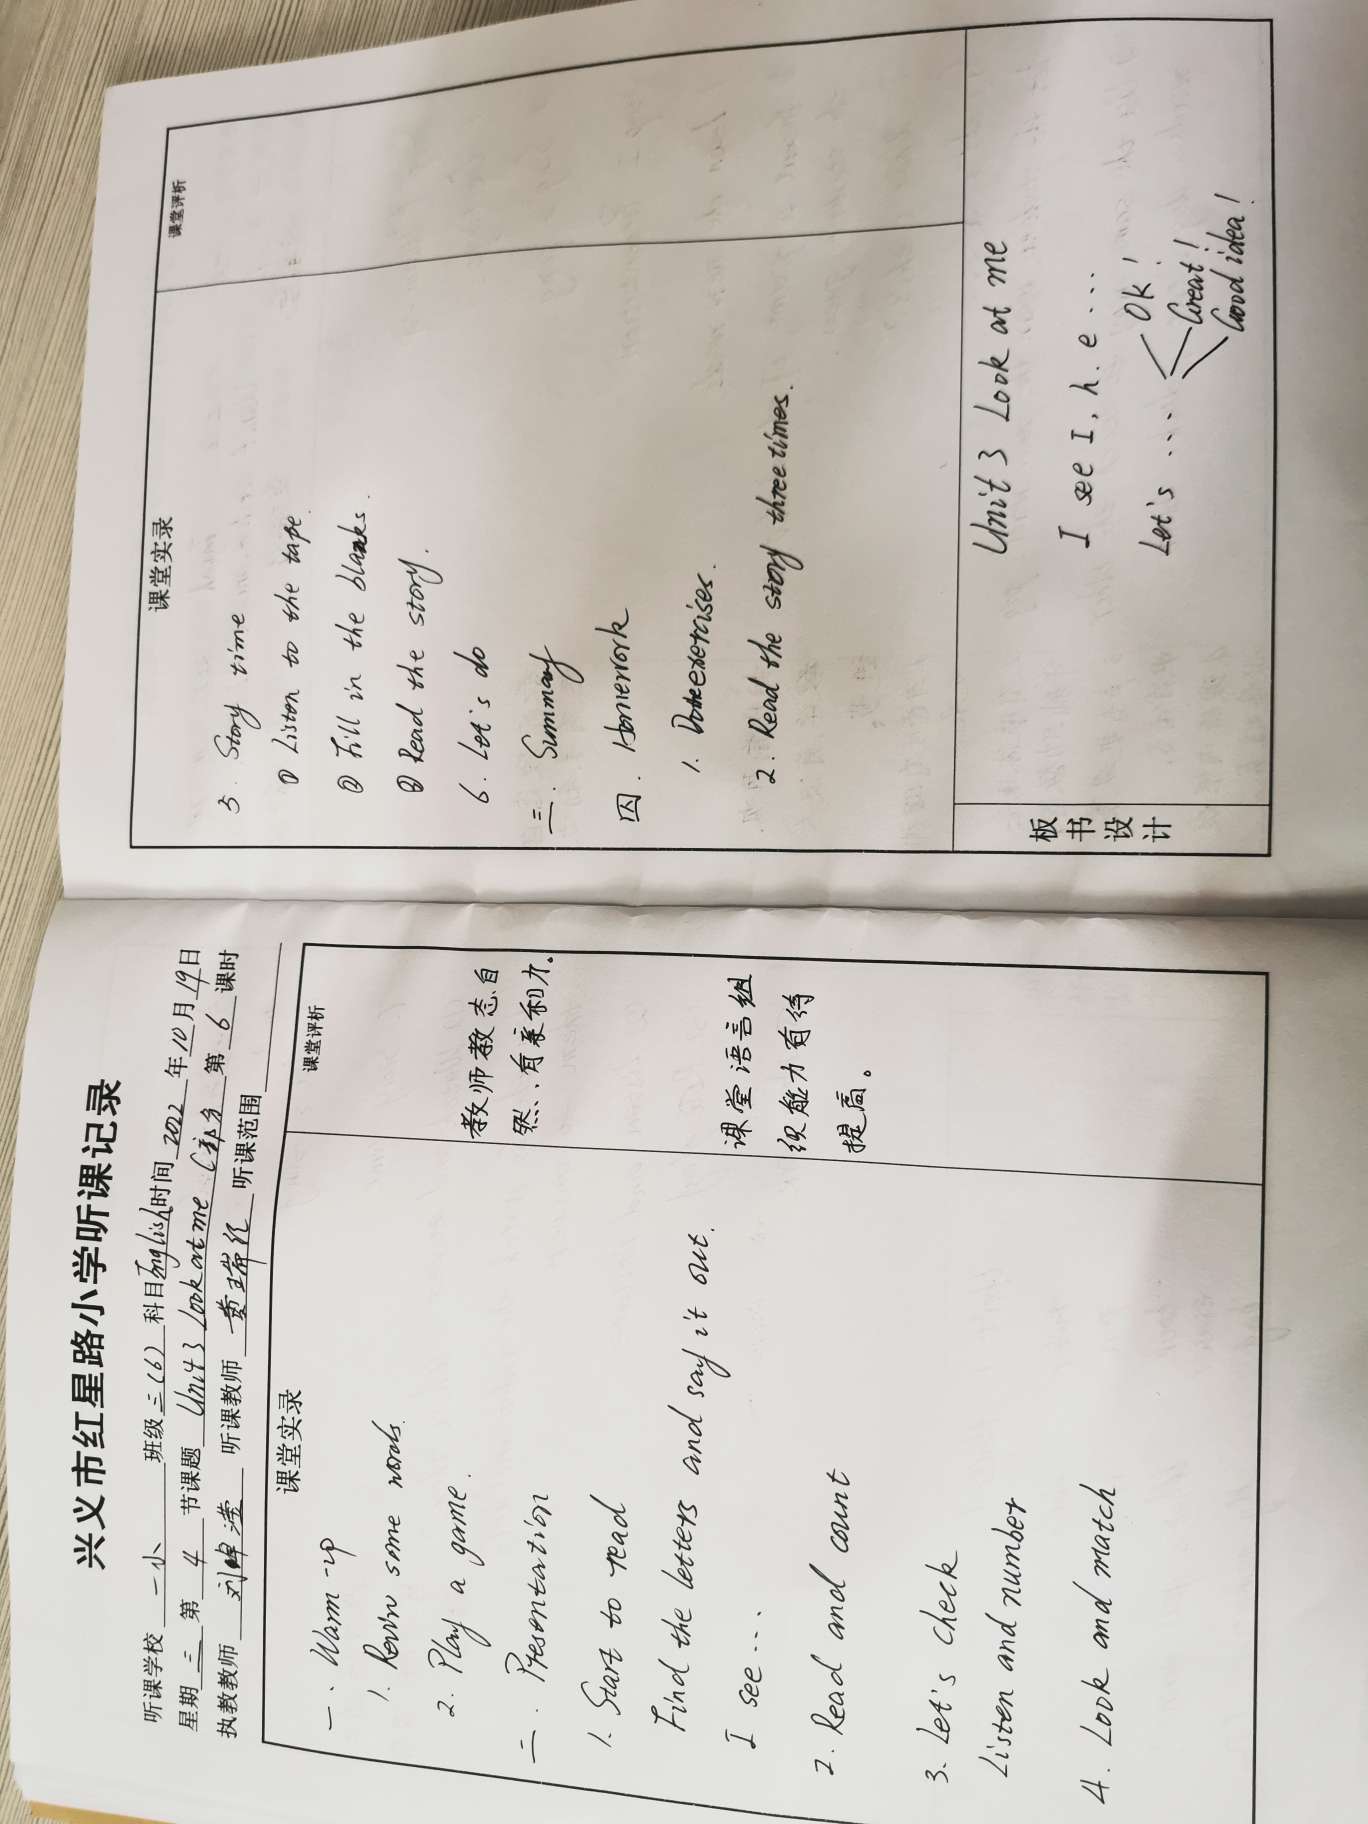 兴义市红星路小学听课记录
听课学校 一小 班级 三(6) 科目 English 时间 2022 年 10 月 19 日
星期 三 第 4 节课题 Unit3 Look at me C部分 第 6 课时
执教教师 刘 滢 听课教师 黄瑞 听课范围
课堂实录
课堂评析
一、Warm-up
1. Review some words.
2. Play a game.
二. Presentation
1. Start to read
Find the letters and say it out.
I see...
2. Read and count
3. Let's check
Listen and number
4. Look and match
教师教态自
然、有亲和力。
课堂语言组
织能力有待
提高。
课堂实录
课堂评析
5. Story time
① Listen to the tape.
② Fill in the blanks.
③ Read the story.
6. Let's do
三. Summary
四. Homework
1. Do the exercises.
2. Read the story three times.
板书设计
Unit 3 Look at me
I see I, h. e...
Let's ... OK!
Great!
Good idea!